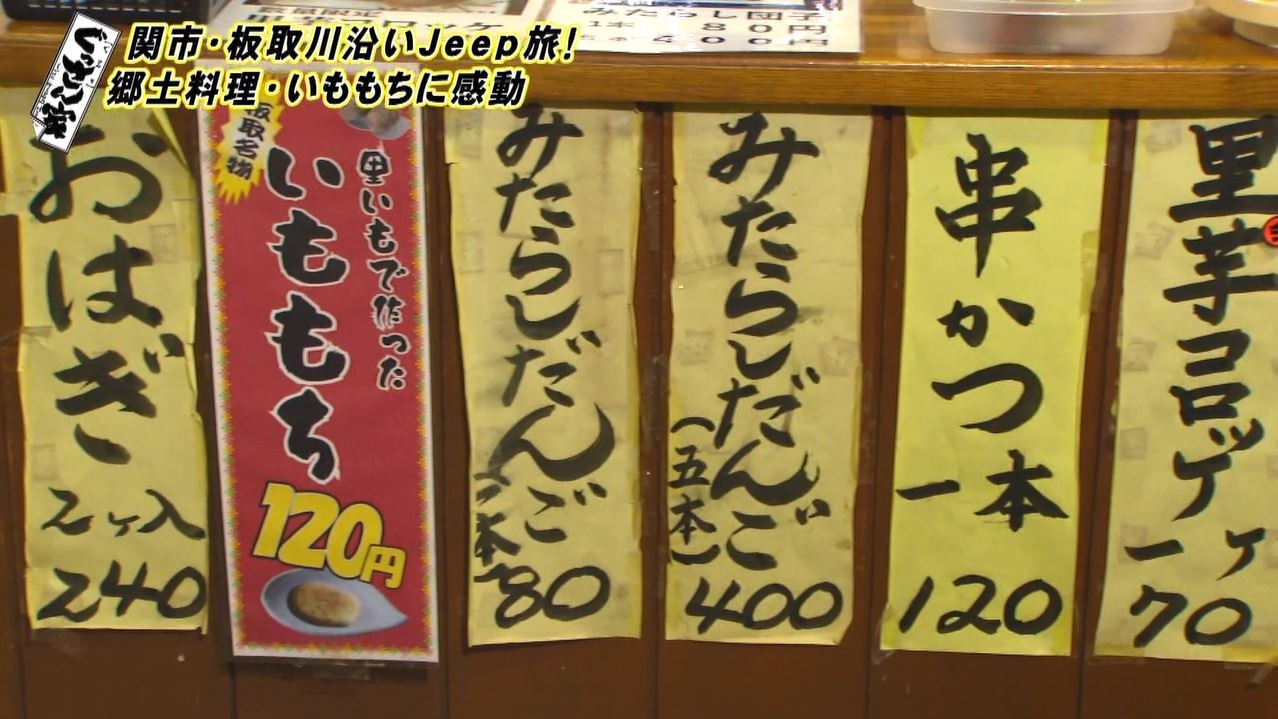 関市・板取川沿いJeep旅!
郷土料理・いももちに感動
ぐっさん家
みたらし団子
1本 80円
400円
おはぎ
2ヶ入
240
板取名物
里いもで作った
いももち
120円
みたらしだんご
(一本)
80
みたらしだんご
(五本)
400
串かつ
一本
120
里芋コロッケ
一ヶ
70